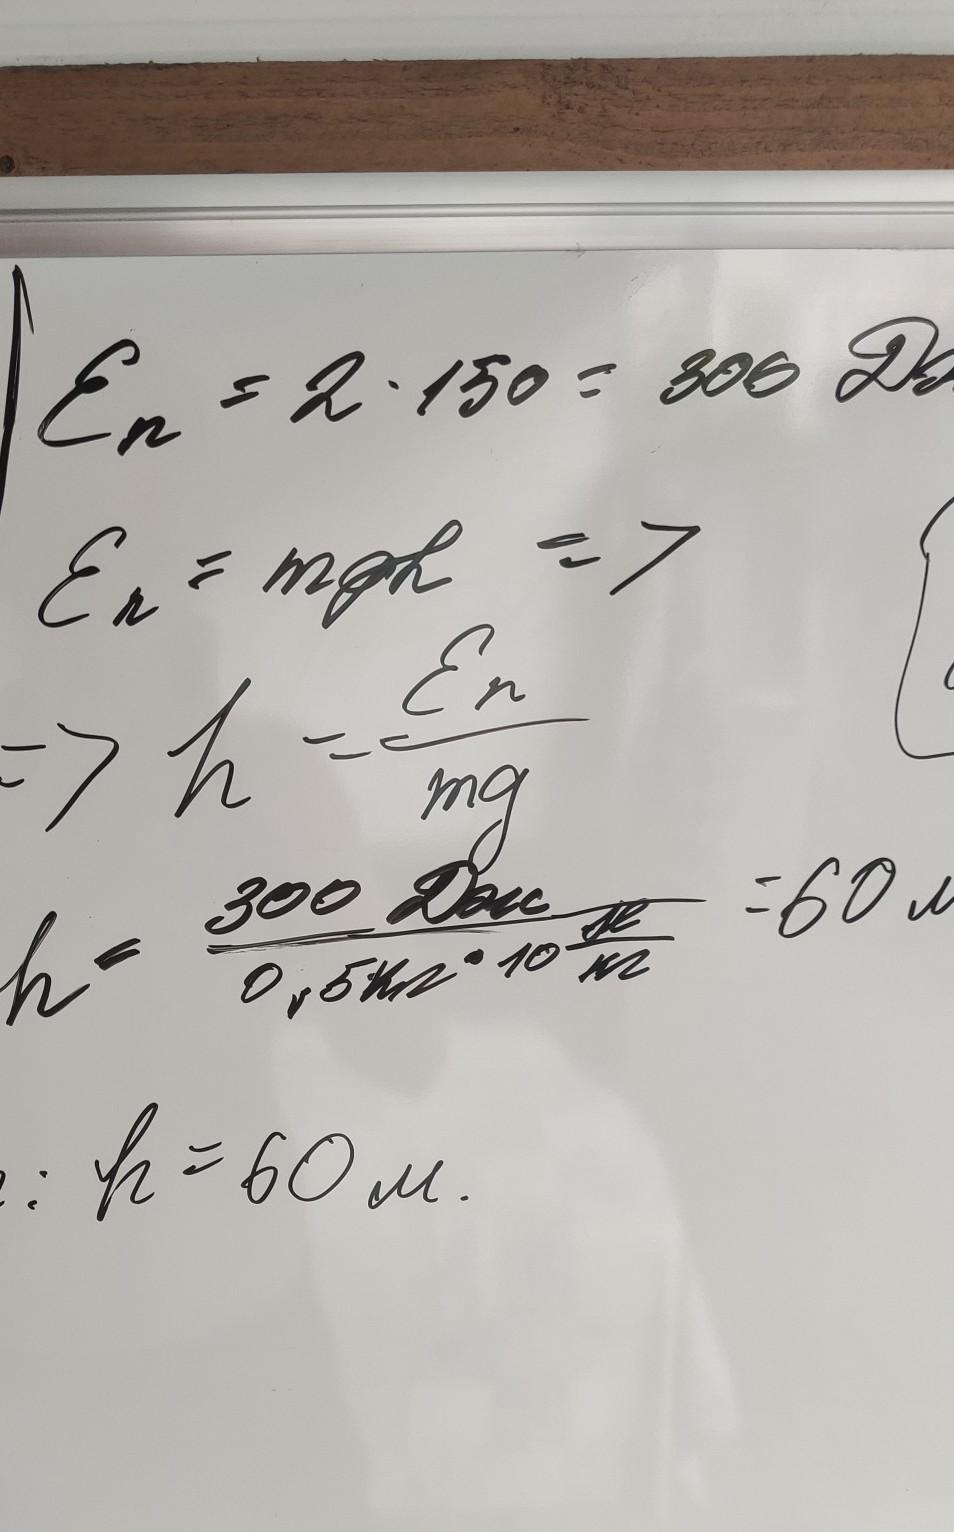 Eп = 2 · 150 = 300 Дж
Eп = mgh =>
=> h = Eп / mg
h = 300 Дж / 0,5кг · 10 Н/кг = 60 м
: h = 60 м.